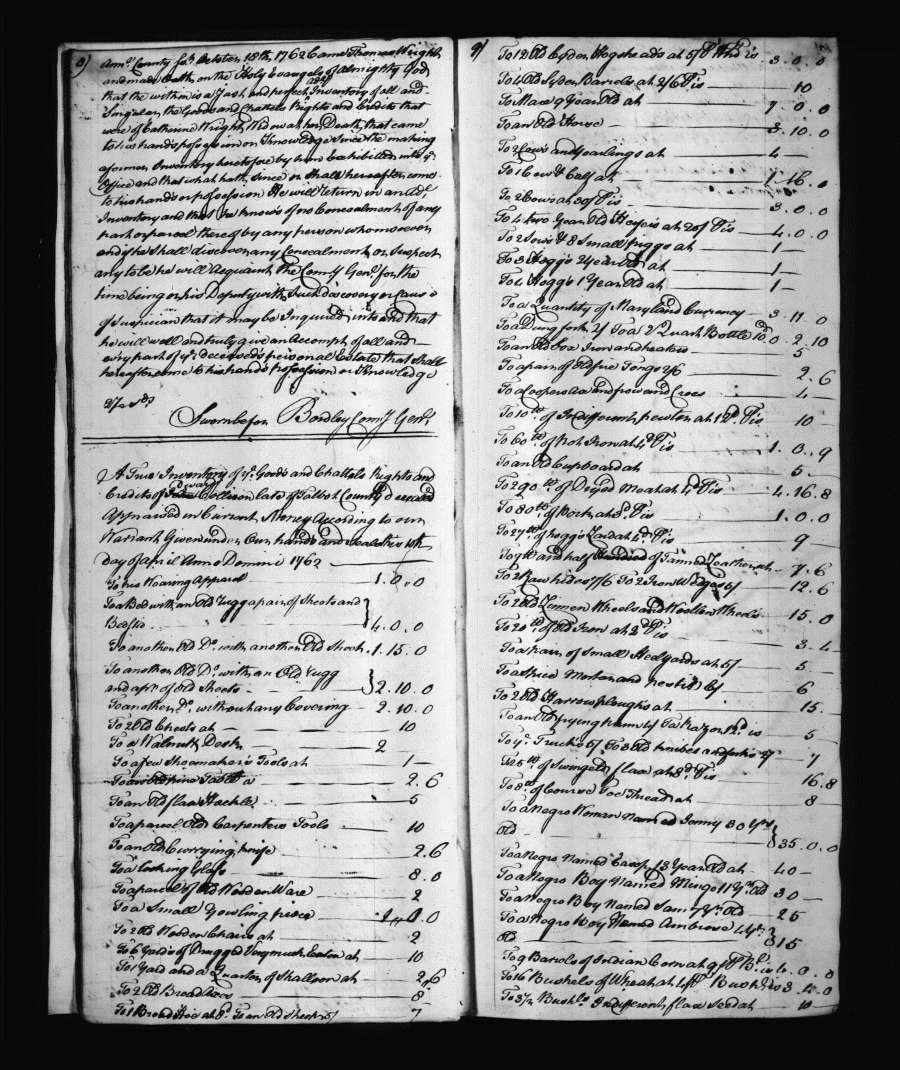 8)
Ann: County Ss. October 18th 1762 Came Thomas Wright
and made Oath on the Holy Evangels of Almighty God
that the within is a Just and perfect add. Inventory of all and
Singular the Goods and Chattels Rights and Credits that
were of Catherine Wright Widow at her Death, that came
to his hands possession or Knowledge Since the making
a former Inventory heretofore by him Exhibitted into ye
Office and that what hath Since or Shall hereafter come
to his hands or possession He will return in an Adl
Inventory and that he knows of no Concealment of any
part or parcel thereof by any person whomsoever
and if he Shall discover any Concealment or Suspect
any to be he will Acquaint the Comry Genl for the
time being or his Deputy with Such discovery or Cause
of Suspician that it may be Inquired into and that
he will well and truly give an Accompt of all and
every part of ye deceased's personal Estate that Shall
hereafter come to his hands possession or Knowledge
Sworn before Bordley Comry Genl
A True Inventory of ye Goods and Chattels Rights and
Credits of Edward Collison late of Talbot County deceased
Appraised in Current Money According to our
Warrant Given under Our hands and Seals this 10th
day of april Anno Domini 1762
To his Wearing Apparel 1.0.0
To a Bed with an Old Rugg a pair of Sheets and
Bedsts 4.0.0
To another Old Do with another Old Sheet 1.15.0
To another Old Do with an Old Rugg
and a pr of Old Sheets 2.10.0
To another Do without any Covering 2.10.0
To 2 Old Chests at 10
To a Walnutt Desk 2
To a few Shoemakers Tools at 1
To an old pine Table a 2.6
To an Old flax Hackle 5
To a parcel Old Carpenters Tools 10
To an Old Currying knife 2.6
To a Looking Glass 8.0
To a parcel of Old Wooden Ware 2
To a Small Fowling piece 1.0.0
To 2 Old Wooden Chairs at 2
To 6 Yards of Drugged at 10
To 1 Yard and a Quarter of Shalloon at 2.6
To 2 Old Broad Axes 8
To 1 Broad Hoe at 2/ To an Old Sheep 5/ 7
9)
To 12 Old Cyder Hogsheads at 5/ P Hhd is 3.0.0
To 4 Old Syder Barrels at 2/6 P is 10
To Mare 9 Year Old at 7.0.0
To an Old Horse 3.10.0
To 2 Cows and Yearlings at 4
To 1 Cow & Calf at 1.16.0
To 2 Cows at 30/ P is 3.0.0
To 4 two Year Old Heifers at 20/ P is 4.0.0
To 2 Sows & 8 Small piggs at 1
To 3 Hoggs 2 Year Old at 1
To 4 Hoggs 1 Year Old at 1
To a Quantity of Maryland Currency 3.11.0
To a Dung fork 2/ To a 2 Quart Bottle 10d 0.2.10
To an Old Box Iron and heaters 5
To a pair of Old fire Tongs 2/6 2.6
To a Coopers ax and frow and Croes 4
To 10 lb of Indifferent pewter at 12d P is 10
To 60 lb of Pot Iron at 4d P is 1.0.9
To an Old Cupboard at 5
To 290 lb of Dryed Meat at 4d P is 4.16.8
To 80 lb of Pork at 3d P is 1.0.0
To 27 lb of hoggs Lard at 4d P is 9
To 5 lb and half of Tanned Leather at 7.6
To 2 Raw hides 7/6 To 2 Iron Wedges 5/ 12.6
To 2 Old Linnen Wheels and Woollen Wheels 15.0
To 20 lb of Old Iron at 2d P is 3.4
To a pair of Small Steelyards at 5/ 5
To a Spice Mortar and pestle 6/ 6
To 2 Old Harrow ploughs at 15
To an Old frying pan 4/ To a Razor 12d is 5
To 4 pr Trucks 5/ To 3 Old knives and forks 2/ 7
To 25 lb of Swingeld flax at 8d P is 16.8
To 8 lb of Course Toe Thread at 8
To a Negro Woman Named Jenny 30 Yrs
Old 35.0.0
To a Negro Named Cesor 13 Year Old at 40
To a Negro Boy Named Mingo 11 Yr Old 30
To a Negro Boy Named Sam 7 Yr Old 25
To a Negro Boy Named Ambrose 4 Yr
Old 15
To 9 Barrels of Indian Corn at 9/ P Bl is 4.0.0
To 16 Bushels of Wheat at 4/ P Bushl is 3.4.0
To 3 1/2 Bushls Indifferent flax Seed at 10